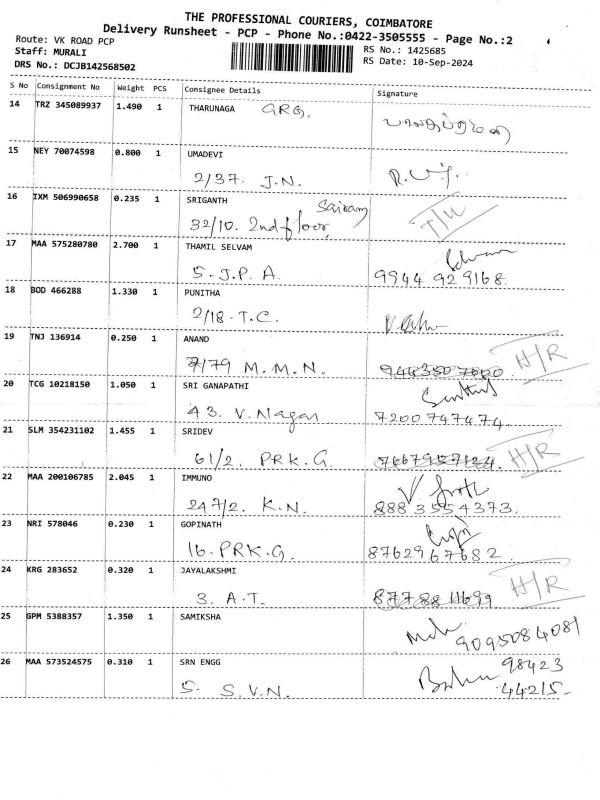 THE PROFESSIONAL COURIERS, COIMBATORE
Delivery Runsheet - PCP - Phone No.:0422-3505555 - Page No.:2
Route: VK ROAD PCP RS No.: 1425685
Staff: MURALI RS Date: 10-Sep-2024
DRS No.: DCJB142568502
S No Consignment No Weight PCS Consignee Details Signature
14 TRZ 345089937 1.490 1 THARUNAGA GRG.
15 NEY 70074598 0.800 1 UMADEVI
2/37. J.N.
16 IXM 506990658 0.235 1 SRIGANTH Sairam
32/10. 2nd floor,
17 MAA 575280780 2.700 1 THAMIL SELVAM
5. J.P.A. 9944 929168.
18 BOD 466288 1.330 1 PUNITHA
2/18. T.C.
19 TNJ 136914 0.250 1 ANAND H/R
7/79 M.M.N.
20 TCG 10218150 1.050 1 SRI GANAPATHI
43. V. Nagar 7200747474.
21 SLM 354231102 1.455 1 SRIDEV H/R
61/2. PRK.G.
22 MAA 200106785 2.045 1 IMMUNO
247/2. K.N. 8883554373.
23 NRI 578046 0.230 1 GOPINATH
16. PRK.G. 8762967682.
24 KRG 283652 0.320 1 JAYALAKSHMI H/R
3. A.T.
25 GPM 5388357 1.350 1 SAMIKSHA
9095084081
26 MAA 573524575 0.310 1 SRN ENGG 98423
5. S.V.N. 44215-